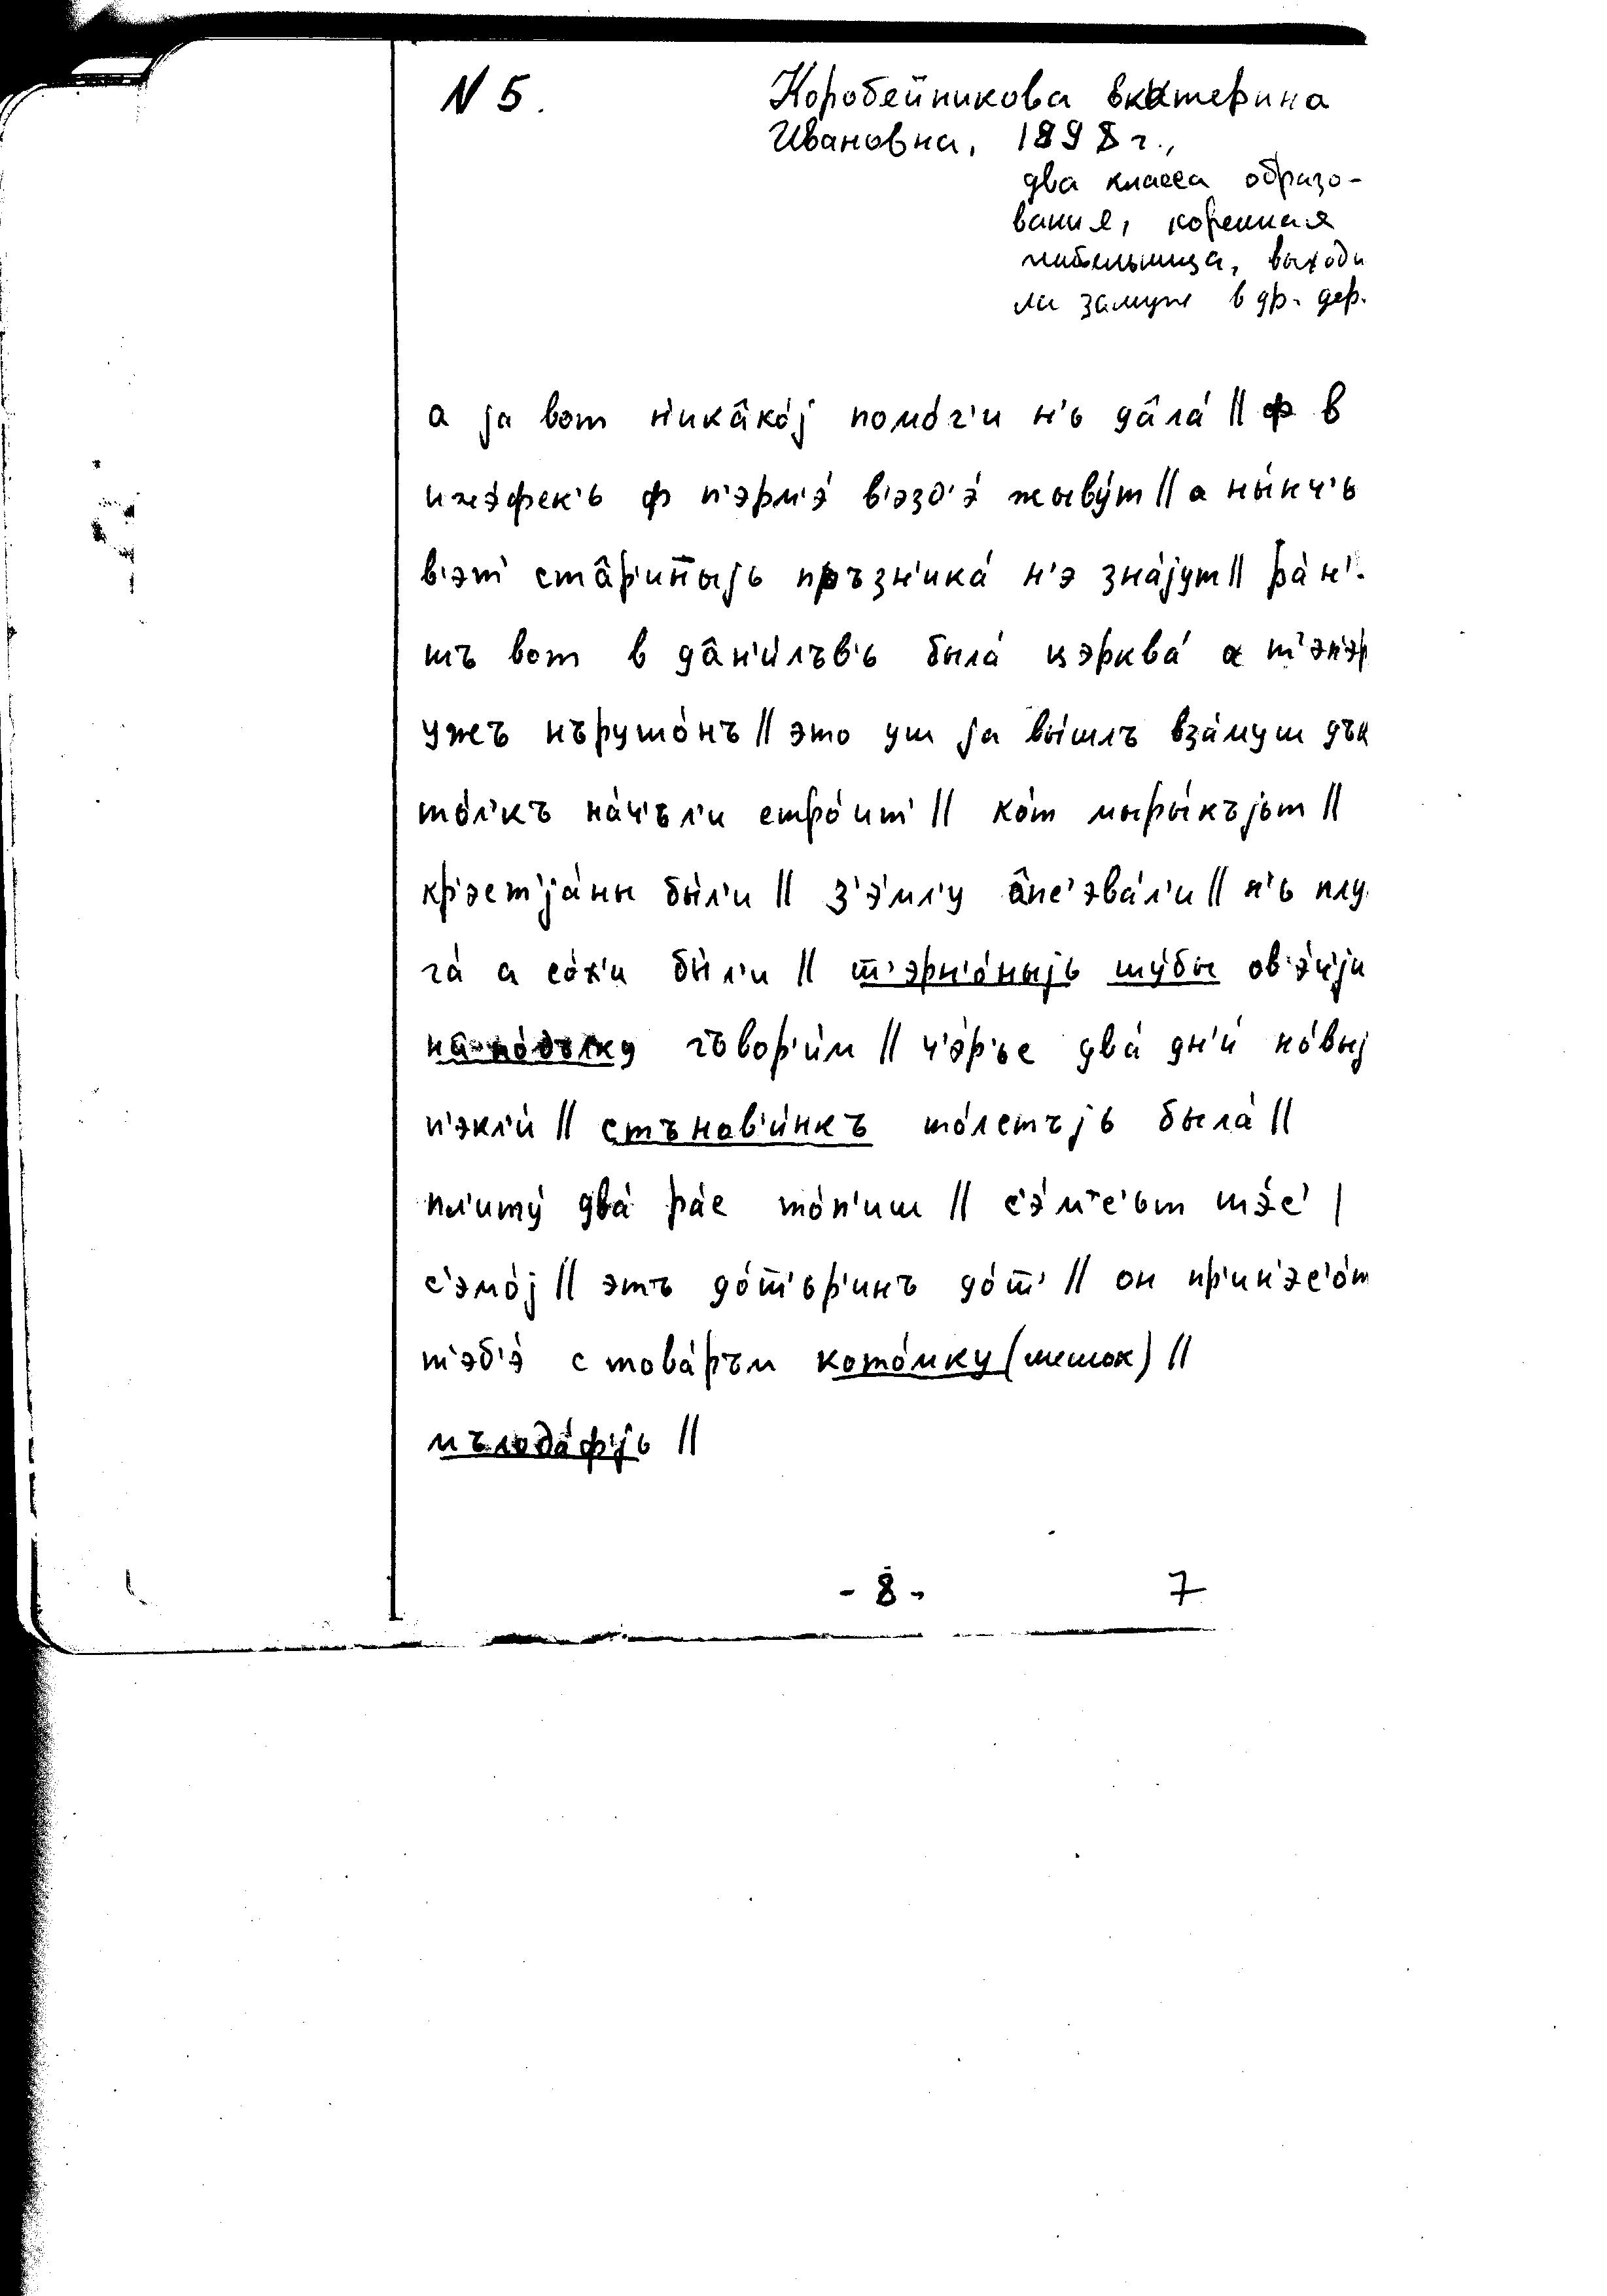 N 5. Коробейникова Екатерина
Ивановна, 1898 г.,
два класса образо-
вания, коренная
жительница, выходи
ли замуж в др. дер.
а jа вот н'икâко́j помо́г'и н'ь дâла́ || ф в
ижэ́фск'ь ф п'эрм'э́ в'эзд'э́ жыву́т || а ны́нч'ь
в'эт' стâр'ин̄ыjь пръзн'ика́ н'э зна́jут || ра́н'-
шъ вот в дâн'и́лъв'ь была́ цэрква́ а т'эп'эр
ужъ нърушо́нъ || это уш jа вы́шлъ вза́муш дък
то́л'къ на́ч'ъл'и стро́ит' || ко́т мыры́къjьт ||
кр'эст'jа́ны бы́л'и || з'э́мл'у âпс'эва́л'и || н'ь плу
га́ а со́х'и бы́л'и || т̄'эрн'о́ныjь шу́бы ов'э́ч'jи
на по́дъlку гъвор'и́м || ч'э́р'ьс два́ дн'и́ но́выj
п'экл'и́ || стънав'и́нкъ то́лстъjь была́ ||
пл'иту́ два́ ра́с то́п'иш || с'э́м'с'ьт шэ́с' |
с'эмо́j || этъ до́т̄'ьр'инъ до́т̄' || он пр'ин'эс'о́т
т'эб'э́ с това́ръм кото́мку (мешок) ||
мълода́ф'jь ||
- 8 - 7